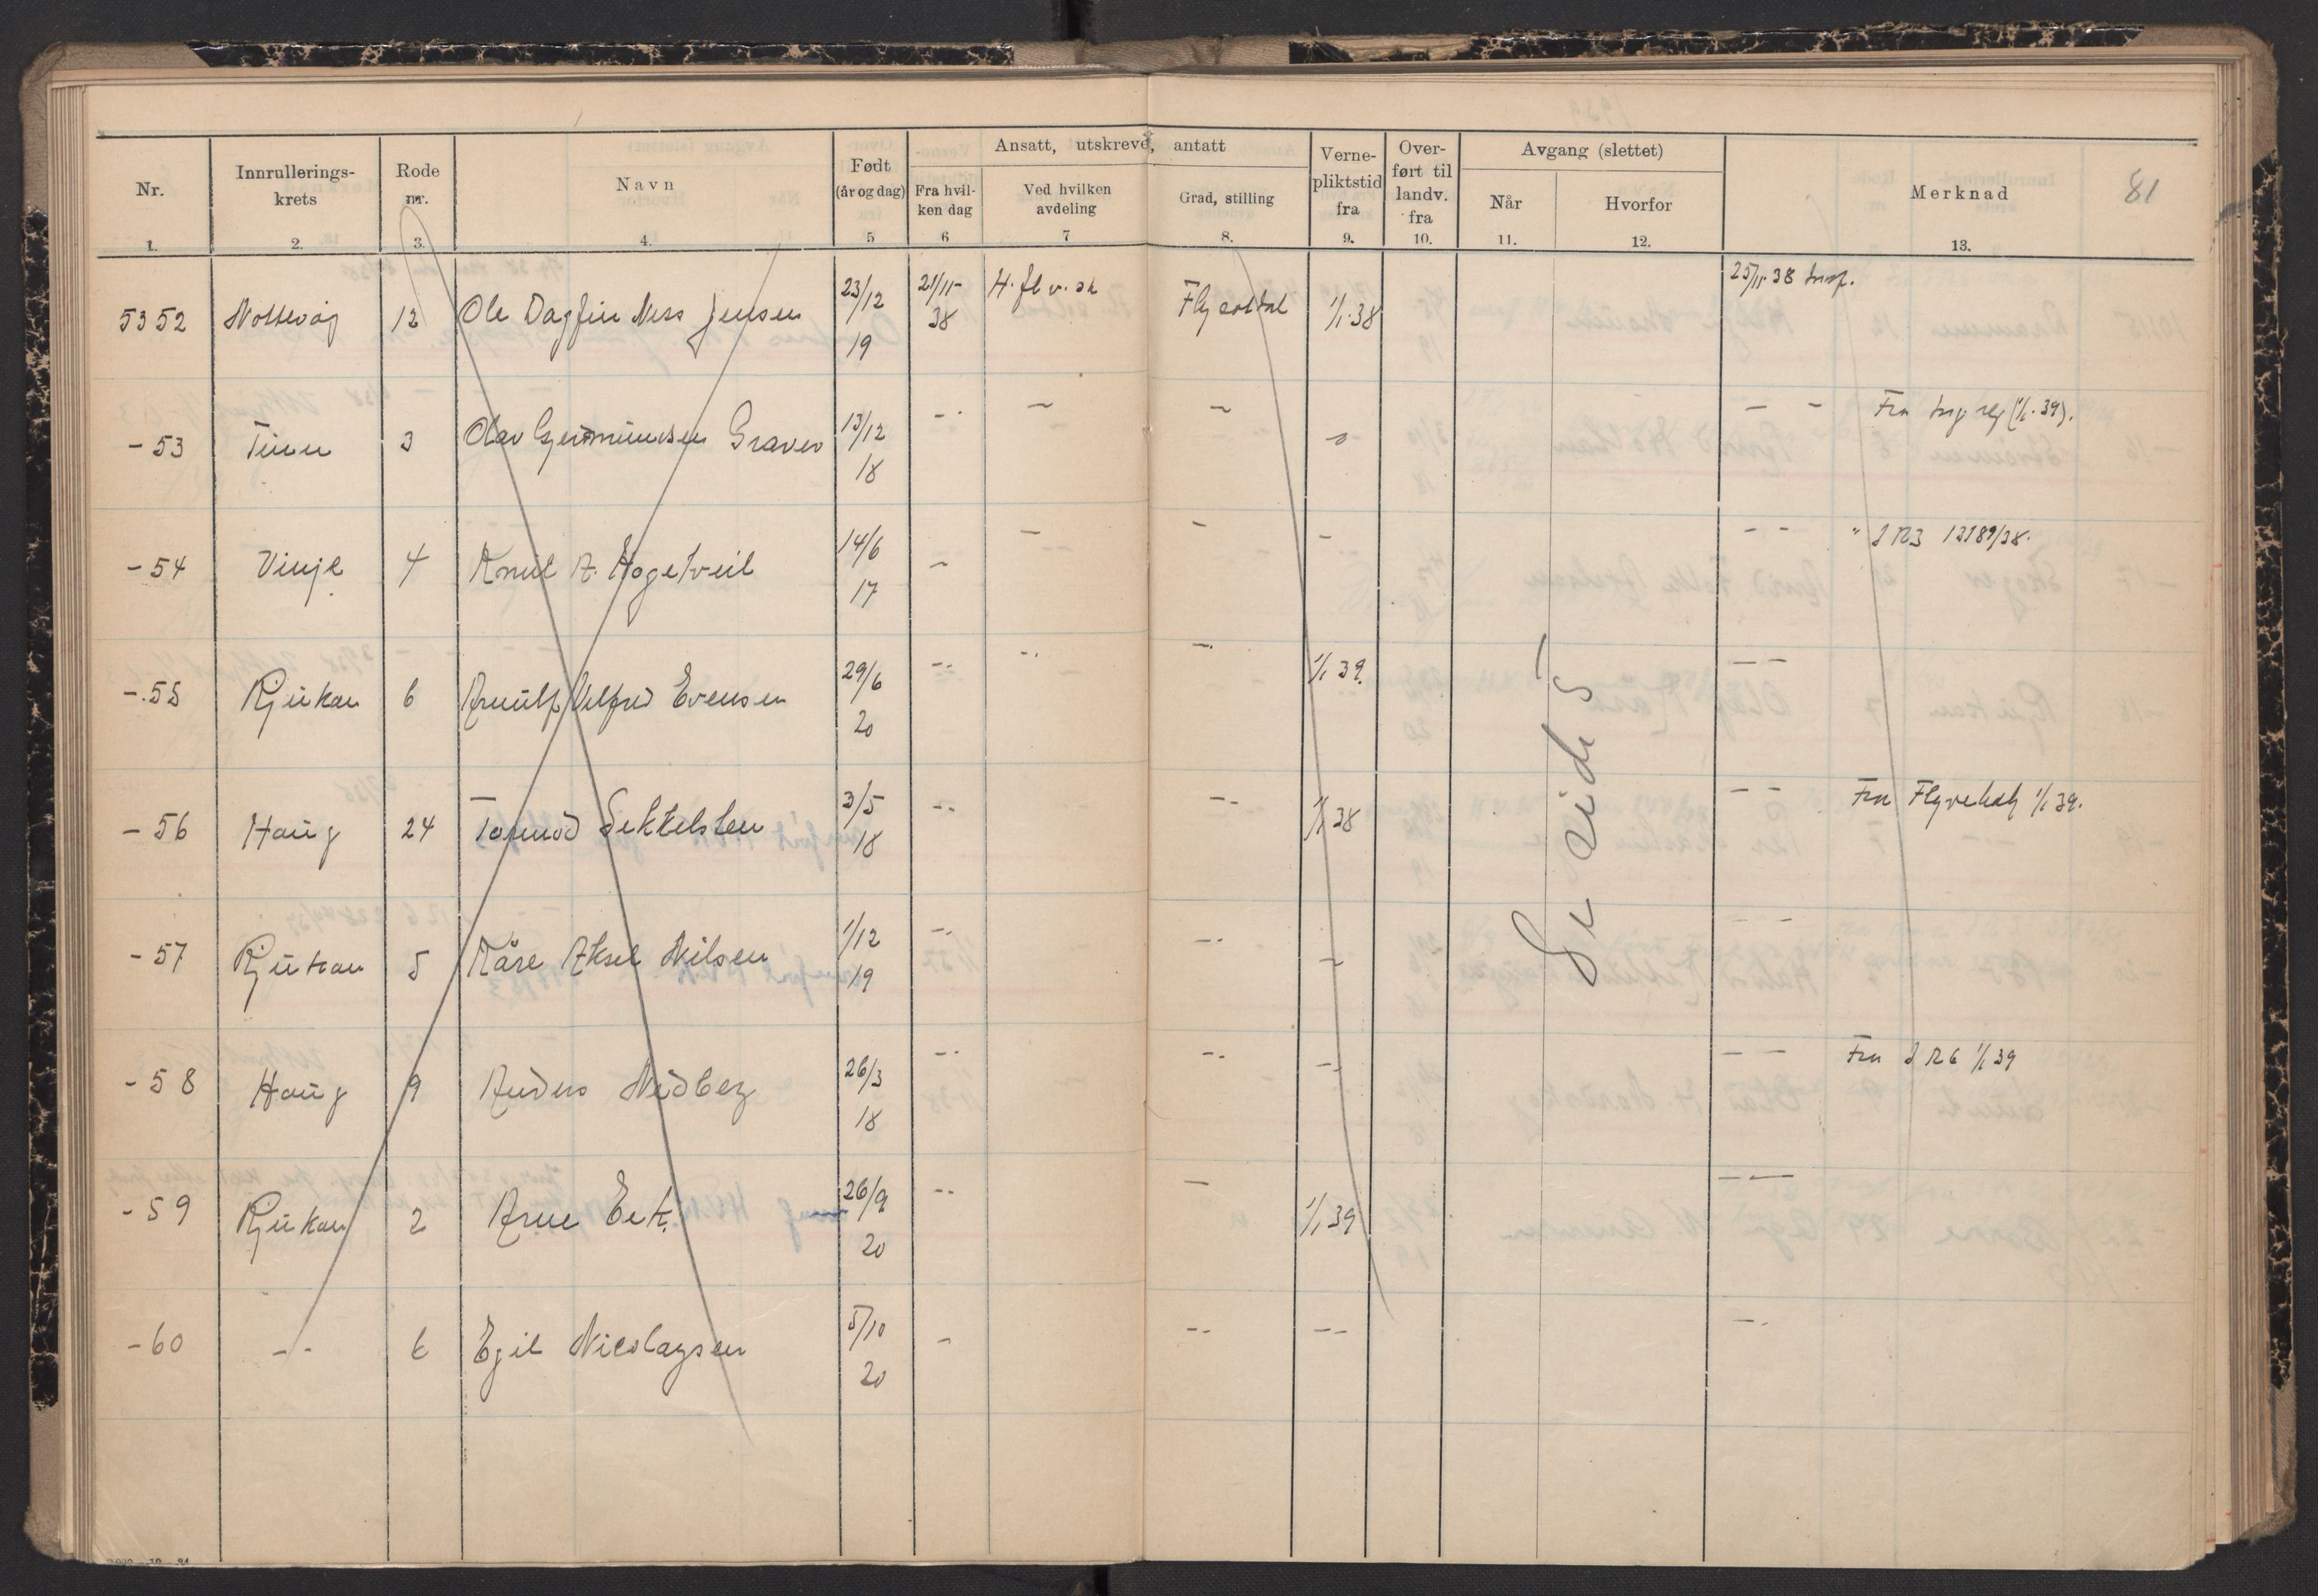 81
Nr. Innrullerings-krets Rode nr. Navn Født (år og dag) Ansatt, utskrevet, antatt Fra hvil-ken dag Ved hvilken avdeling Grad, stilling Verne-pliktstid fra Over-ført til landv. fra Avgang (slettet) Når Hvorfor Merknad
1. 2. 3. 4. 5 6 7 8. 9. 10. 11. 12. 13.
5352 12 Ole Dagfin Ness Jensen 23/12 19 21/11- 38 H. fl v. sk Flysoldat 1/1 38 25/11 38
- 53 Tinn 3 Olav Graver 13/12 18 - . - - - - - Fra (1/1 39).
- 54 Vinje 4 Knut A. 14/6 17 - - - - - - " I R3 /38.
- 55 Rjukan 6 Arnulf Evensen 29/6 20 - - - - 1/1 39. - -
- 56 Haug 24 Tormod 3/5 18 - - - - 1/1 38 - - Fra 1/1 39.
- 57 Rjukan 5 Kåre Aksel Nilsen 1/12 19 - - - - - - -
- 58 Haug 9 Anders Nedberg 26/3 18 - - - - - - - Fra I R 6 1/1 39
- 59 Rjukan 2 Arne Eek. 26/9 20 - - - 1/1 39 - -
- 60 - - 6 Egil Nicolaysen 5/10 20 - - - - - - -
Se side 5